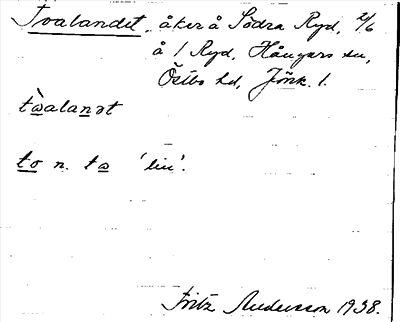 Toalandet, åker å Södra Ryd, 2/6
å 1 Ryd, Hångers sn,
Östbo hd, Jönk. l.
tòalanət
to n. ta 'lin'.
Fritz Andersson 1938.